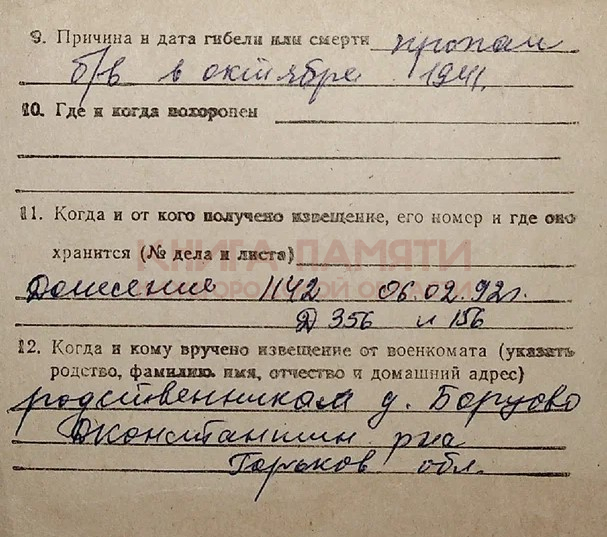 9. Причина и дата гибели или смерти пропал
б/в в октябре 1941г.
10. Где и когда похоронен
11. Когда и от кого получено извещение, его номер и где оно
хранится (№ дела и листа)
КНИГА ПАМЯТИ
Донесение 1142 06.02.92г.
Д 356 л 156
12. Когда и кому вручено извещение от военкомата (указать
родство, фамилию, имя, отчество и домашний адрес)
родственникам д. Борцово
Дконстантин рна
Горьков обл.